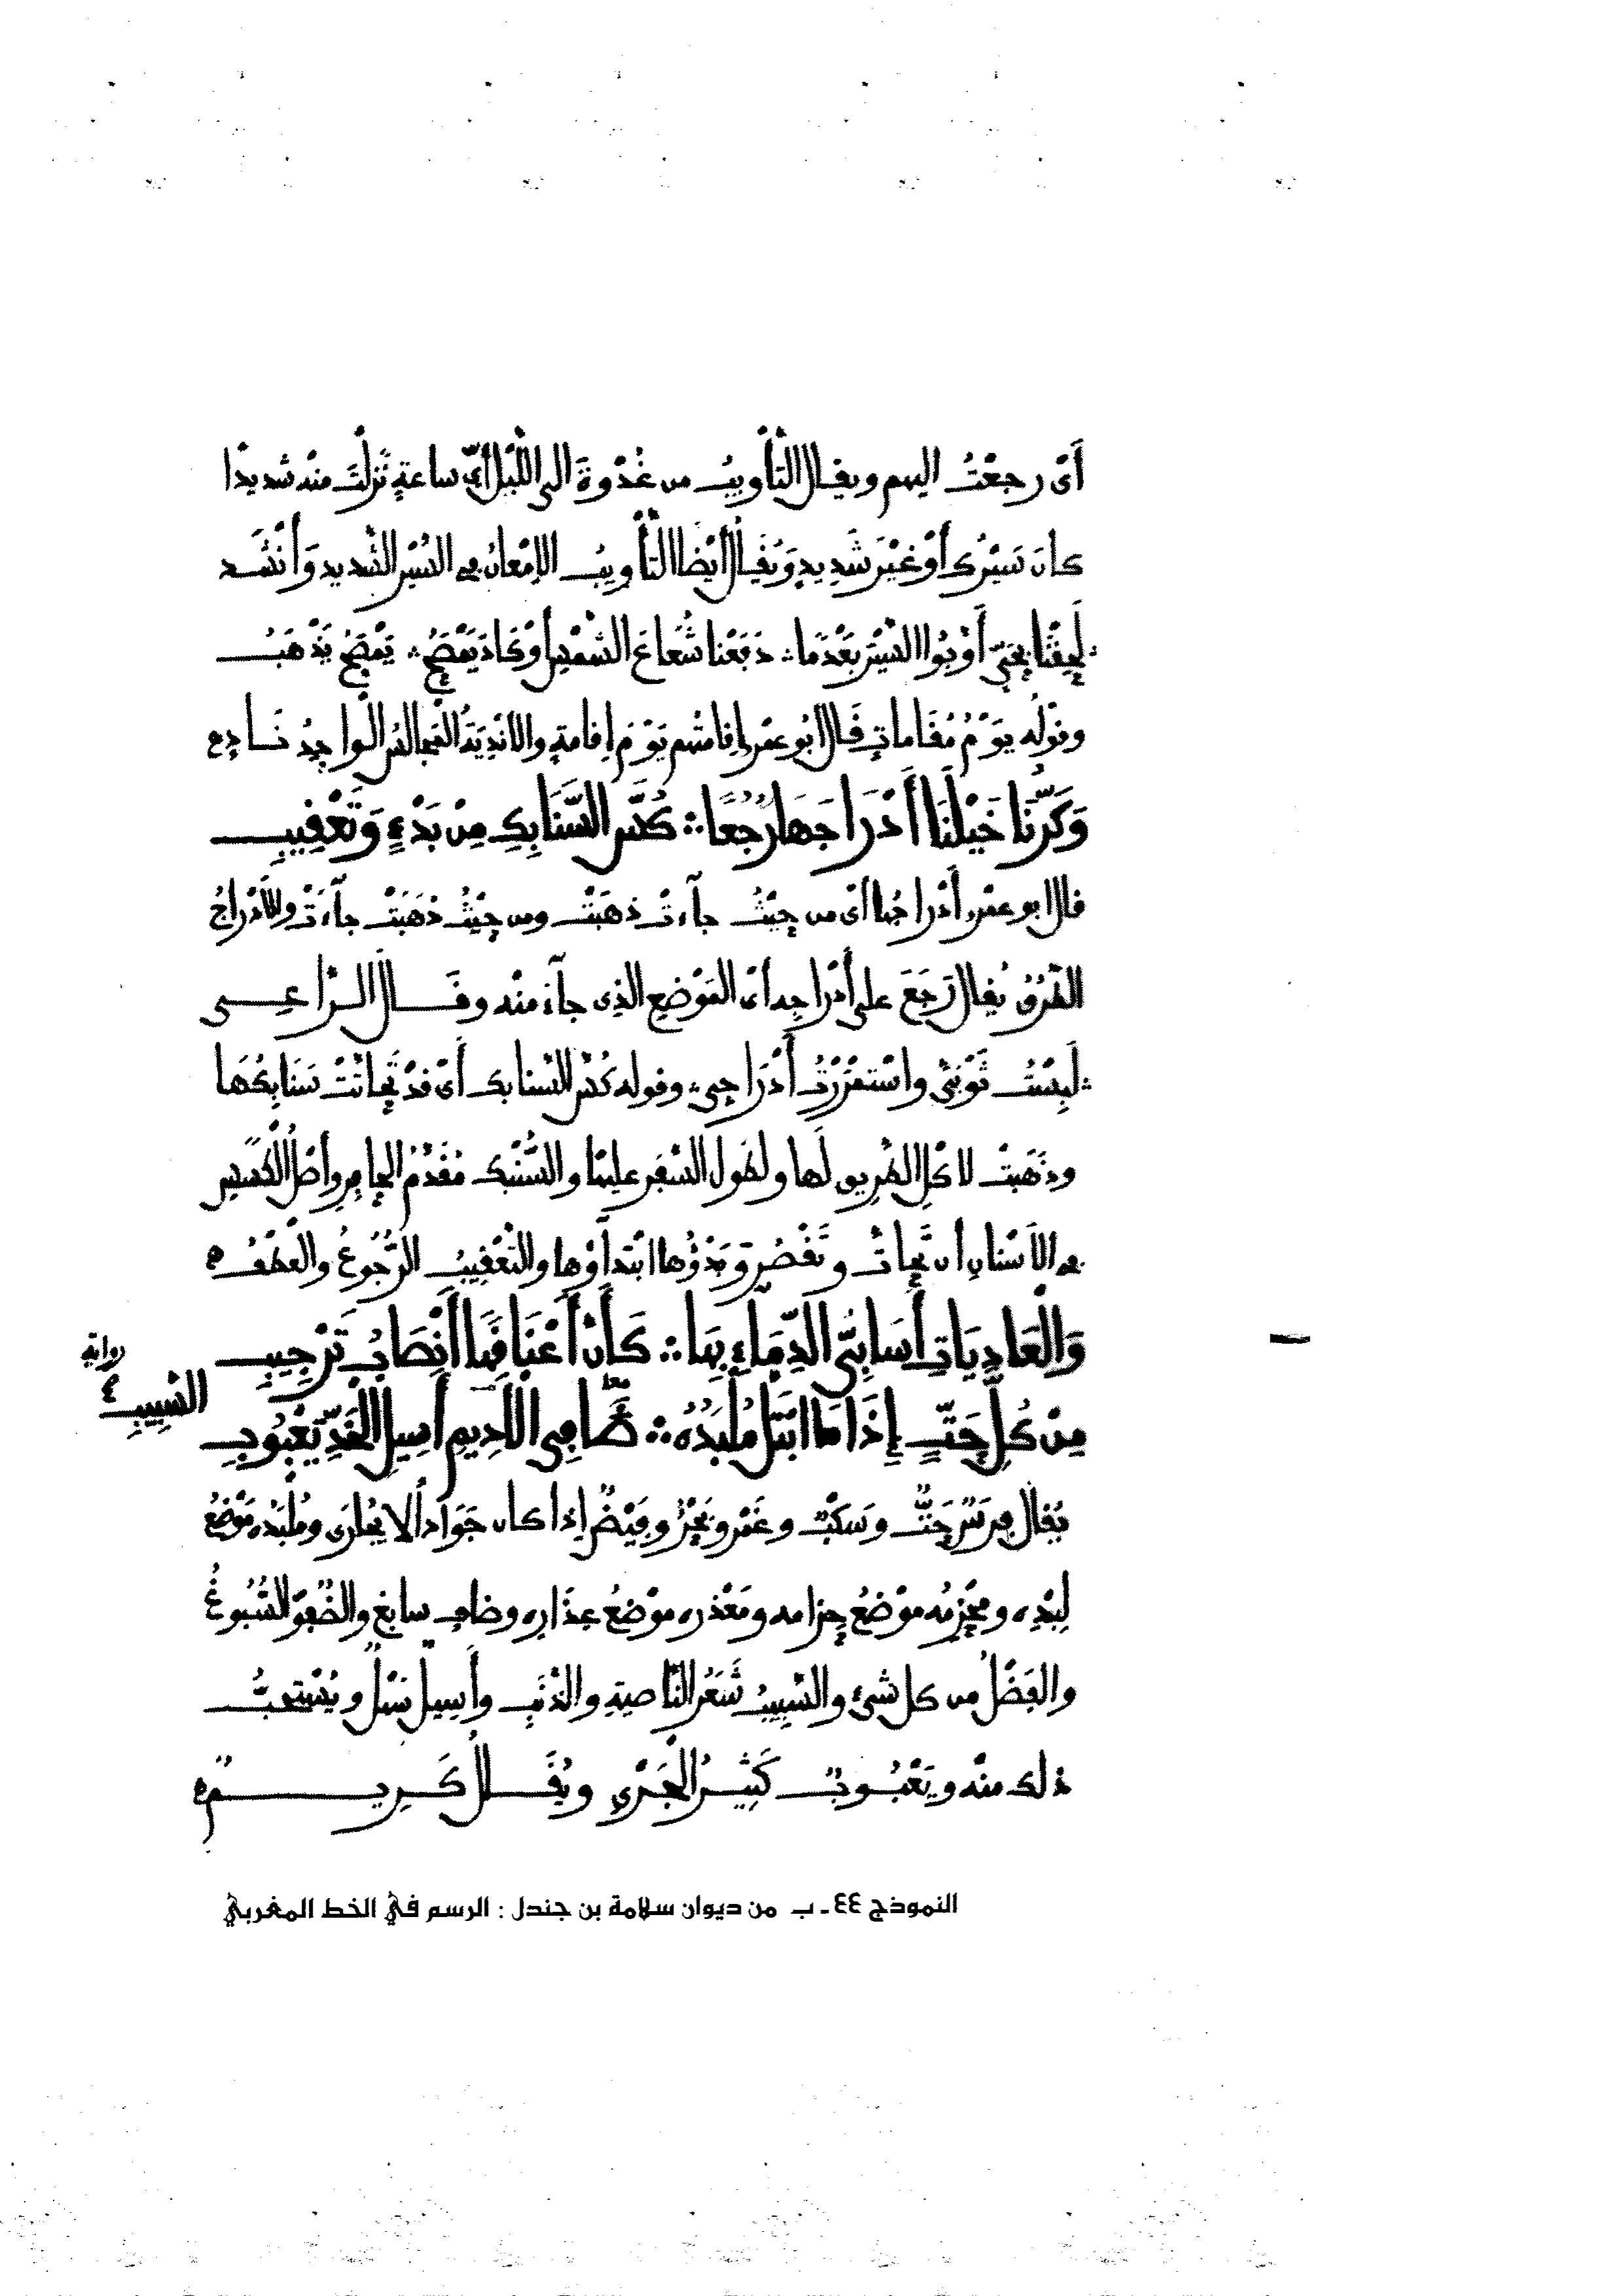 أَىْ رجعْتُ اليهم ويقال التأْويبُ من غُدْوةَ الى اللّيْل أىّ ساعةٍ نَزلْتَ منْه شديدًا
كان سَيْرُك أَوْ غيْرَ شَديدٍ ويُقَالُ أيْضًا التأْويبُ الإمْعانُ فى السَّيْر الشّديد وَأَنْشَد
لَحِقْنا بِحَىٍّ أَوَّبُوا السَّيْرَ بَعْدَما ؞ دَفَعْنا شُعَاعَ الشّمْسِ أَوْ كَادَ يَمْصَحُ ؞ يَمْصَحُ يَذْهَبُ
وقوْلُه يَوْمُ مُقَاماتٍ قَالَ أَبُو عَمْرٍو إقامتُهم يَوْمَ إقامةٍ والأنْدِيَةُ المَجالسُ الواحِدُ نَـادٍ ه
وَكَرِّنَا خَيْلَنَا أَدْرَاجَهَا رُجُعًا ؞ كُسَّ السَّنَابِكِ مِنْ بَدْءٍ وَتَعْقِيبِ
قال ابو عمْرٍو أَدْراجُها أىْ من حيْثُ جآءتْ ذهبَتْ ومن حيْثُ ذهَبَتْ جآءَتْ والأَدْراجُ
الطُّرُقُ يُقالُ رَجَعَ على أَدْراجِه أىْ المَوْضِعِ الذِى جآءَ منْه وقَـال الـرّاعِـى
لَبِسْتُ ثَوْبَىَّ واسْتمْرَرْتُ أَدْرَاجِى ؞ وقوله كُسّ السّنابك أىْ قدْ تَحاتّتْ سَنَابِكُهَا
وذَهَبَتْ لاكْلِ الطَّرِيقِ لَها ولطول السّفَر عليْها والسُّنْبك مُقَدَّمُ الحافِر وأَصْلُ الكَسَسِ
فى الأَسْنانِ أن تَحاتَّ وتَقْصُرَ وَبَدْؤُها ابْتدآؤُها والتّعْقِيبُ الرُّجُوعُ والعَطْفُ ه
وَالْعَادِيَاتِ أَسَابِىُّ الدِّمَاءِ بِهَا ؞ كَأَنَّ أَعْنَاقَهَا أَنْصَابُ تَرْجِيبِ
مِنْ كُلِّ حَتٍّ إِذَا مَا ابْتَلَّ مُلْبَدُهُ ؞ ضَافِى الأَدِيمِ أَسِيلِ الْخَدِّ يَعْبُوبِ
رواية
السَّبِيبِ
يُقال فرَسٌ حَتٌّ وسَكْبٌ وغَمْرٌ وبَحْرٌ وفَيْضٌ إذا كان جَوَادًا لا يُجارَى ومُلْبَدُه مَوْضعُ
لِبْدِه ومَحْزِمُه موْضعُ حِزامه ومَعْذره موْضِعُ عِذَارِه وضافٍ سابغ والضُّفُوّ السُّبُوغُ
والفَضْلُ من كل شىْء والسَّبِيبُ شَعَرُ النّاصيةِ والذّنَب وأسِيلٌ سَهْلٌ ويُسْتحبُّ
ذلك منْه ويَعْبُـوبٌ كَثِيـرُ الجَرْىِ ويُقَـالُ كَـرِيـمٌ ه
النموذج ٤٤ ـ ب من ديوان سلامة بن جندل : الرسم في الخط المغربي